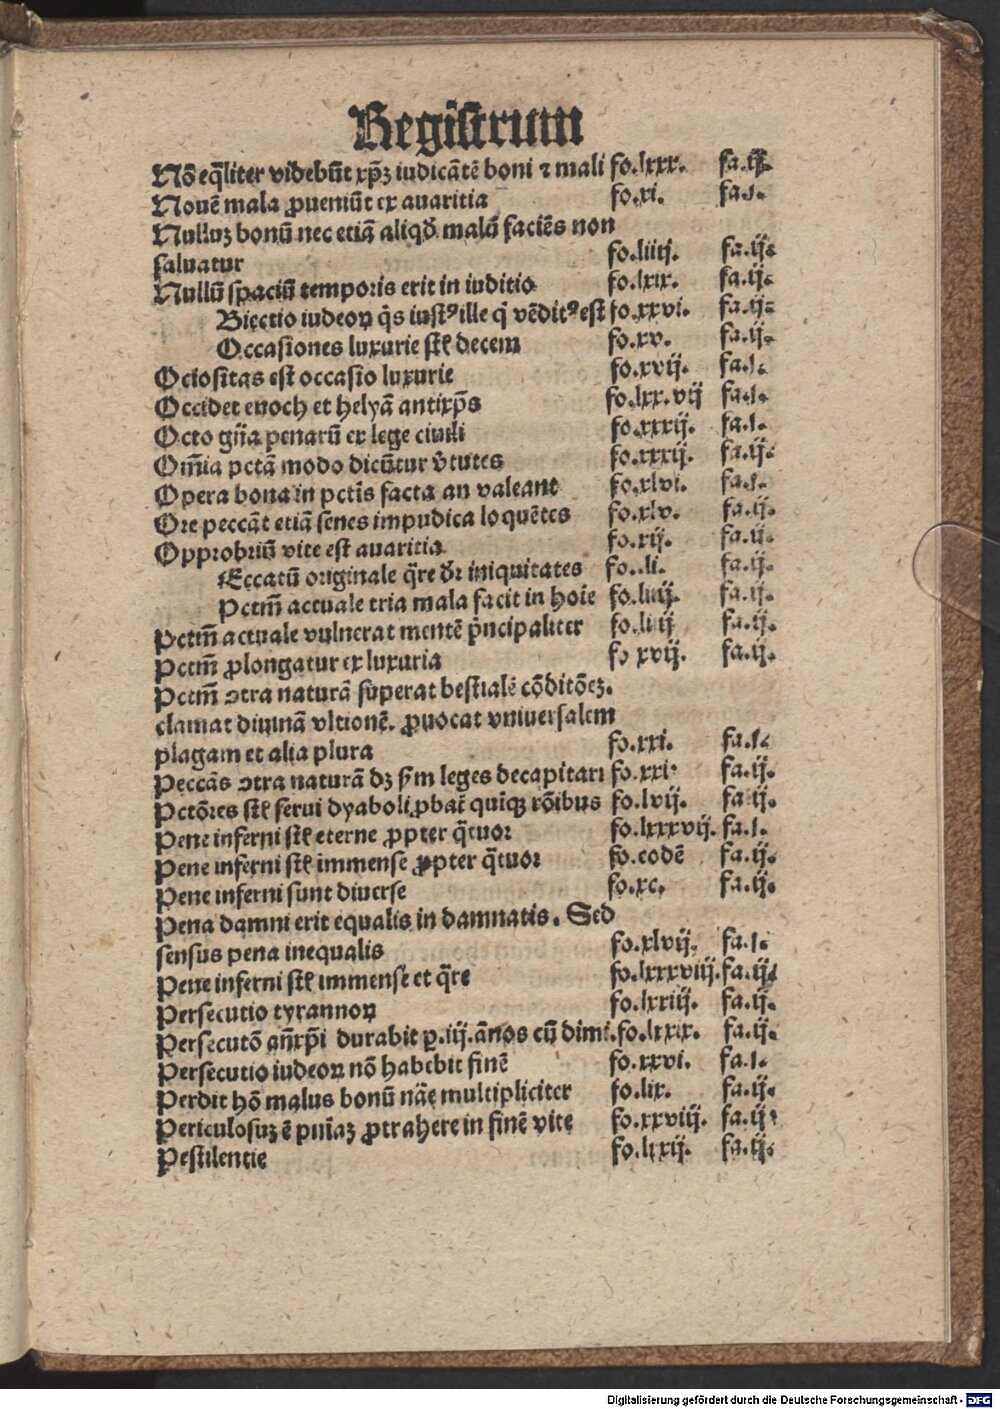 Registrum
Nō eq̄liter videbūt xp̄ȝ iudicātē boni ⁊ mali fo.lxxx. fa.ij.
Nouē mala ꝓueniūt ex auaritia fo.xi. fa.i.
Nulluȝ bonū nec etiā aliqđ malū faciēs non
saluatur fo.liiij. fa.ij.
Nullū spaciū temporis erit in iuditio fo.lxix. fa.ij.
Biectio iudeoꝝ q̄s iustꝰ ille q̄ vēditꝰ est fo.xxvi. fa.ij.
Occasiones luxurie st̄ decem fo.xv. fa.ij.
Ociositas est occasio luxurie fo.xvij. fa.i.
Occidet enoch et helyā antixp̄s fo.lxx.vij fa.i.
Octo gn̄a penarū ex lege ciuili fo.xxxij. fa.i.
Om̄ia pctā modo dicūtur v̄tutes fo.xxxij. fa.ij.
Opera bona in pctīs facta an valeant fo.xlvi. fa.i.
Ore peccāt etiā senes impudica loquētes fo.xlv. fa.ij.
Opprobriū vite est auaritia fo.xij. fa.ij.
Eccatū originale q̄re dr̄ iniquitates fo..li. fa.ij.
Pctm̄ actuale tria mala facit in hoīe fo.liiij. fa.ij.
Pctm̄ actuale vulnerat mentē p̄ncipaliter fo.liiij fa.ij.
Pctm̄ ꝓlongatur ex luxuria fo xvij. fa.ij.
Pctm̄ ↄtra naturā superat bestialē cōditōeȝ.
clamat diuinā vltionē. ꝓuocat vniuersalem
plagam et alia plura fo.xxi. fa.i.
Peccās ↄtra naturā dȝ sm̄ leges decapitari fo.xxi. fa.ij.
Pctōres st̄ serui dyaboli ꝓbat̄ quinqȝ rōibus fo.lvij. fa ij.
Pene inferni st̄ eterne ꝓpter q̄tuor fo.lxxxvij. fa.i.
Pene inferni st̄ immense ꝓpter q̄tuor fo.eodē fa.ij.
Pene inferni sunt diuerse fo.xc, fa.ij.
Pena damni erit equalis in damnatis. Sed
sensus pena inequalis fo.xlvij. fa.i.
Pene inferni st̄ immense et q̄re fo.lxxxviij. fa.ij.
Persecutio tyrannoꝝ fo.lxxiij. fa.ij.
Persecutō an̄xp̄i durabit p.iij.ānos cū dimi. fo.lxxix. fa.ij.
Persecutio iudeoꝝ nō habebit finē fo.xxvi. fa.i.
Perdit hō malus bonū nāe multipliciter fo.lix. fa.ij.
Periculosuȝ ē pn̄iaȝ ꝓtrahere in finē vite fo.xxviij. fa.ij.
Pestilentie fo.lxxij. fa.ij.
Digitalisierung gefördert durch die Deutsche Forschungsgemeinschaft - DFG